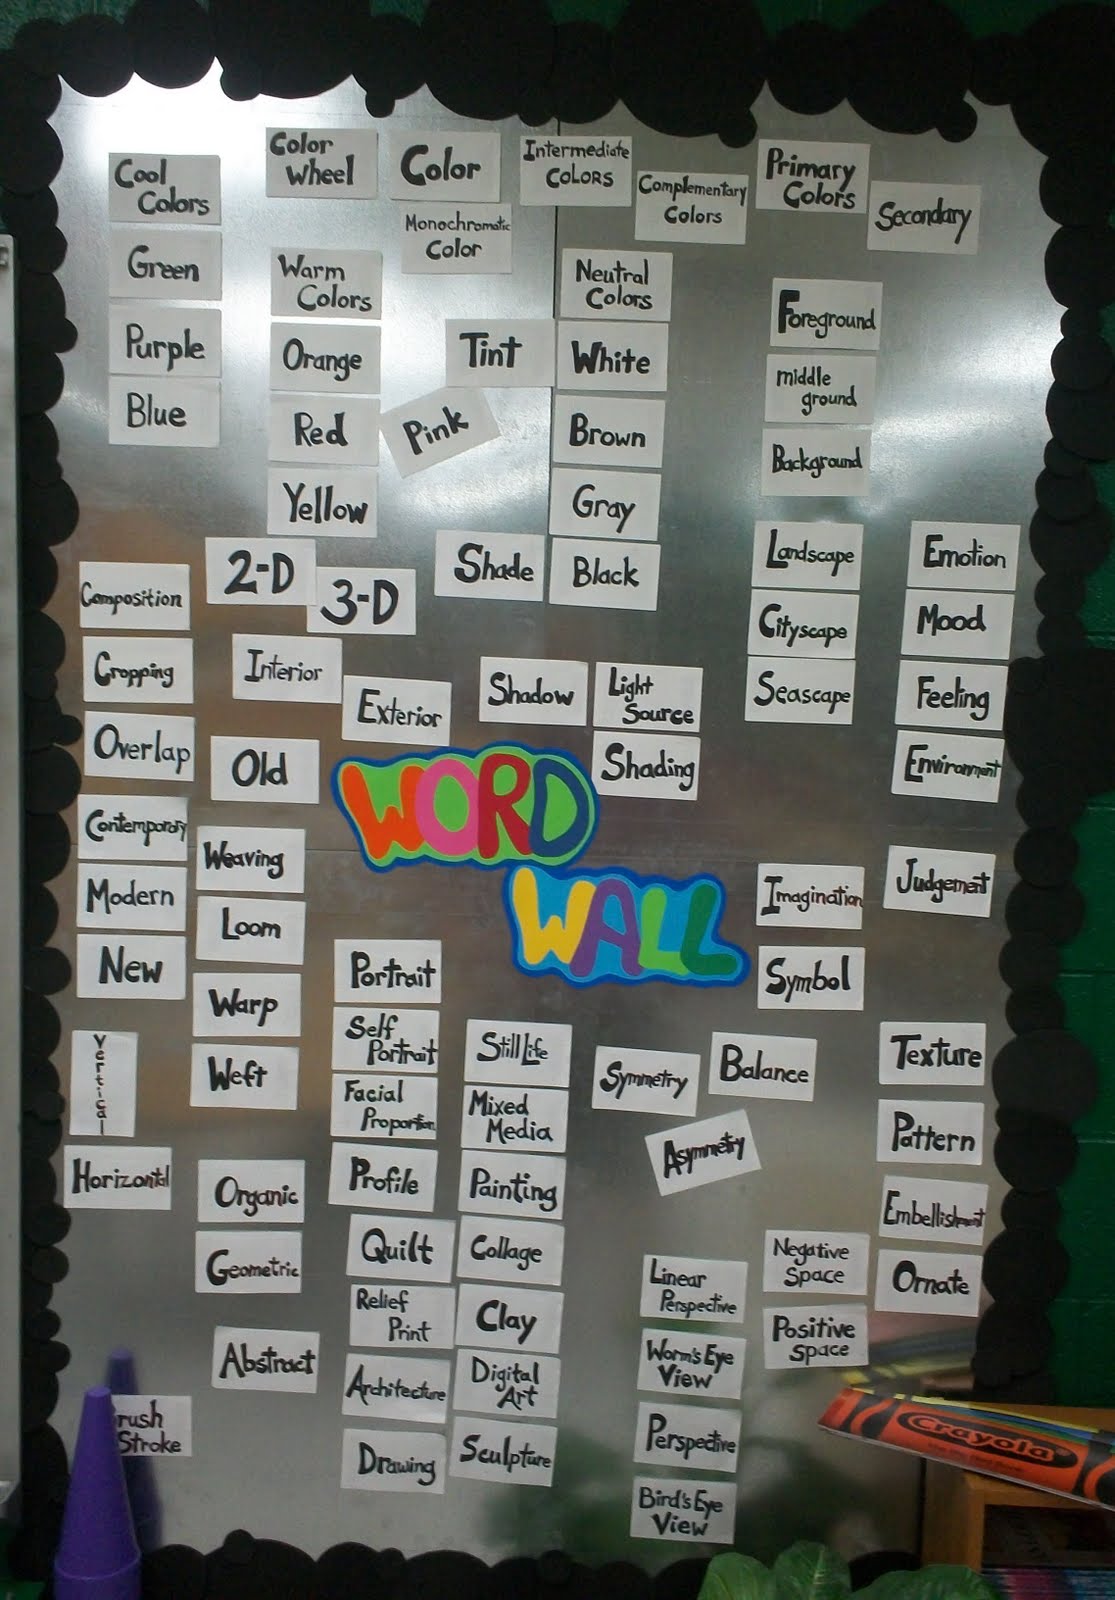 Color
Wheel
Color
Intermediate
Colors
Complementary
Colors
Primary
Colors
Secondary
Cool
Colors
Green
Purple
Blue
Monochromatic
Color
Warm
Colors
Orange
Red
Yellow
Tint
Pink
Neutral
Colors
White
Brown
Gray
Black
Shade
Foreground
middle
ground
Background
Landscape
Cityscape
Seascape
Emotion
Mood
Feeling
Environment
2-D
3-D
Composition
Cropping
Overlap
Interior
Exterior
Shadow
Light
Source
Shading
Old
Contemporary
Modern
New
WORD
WALL
Weaving
Loom
Warp
Weft
Imagination
Symbol
Judgement
Vertical
Horizontal
Portrait
Self
Portrait
Facial
Proportion
Profile
Still Life
Mixed
Media
Painting
Collage
Clay
Digital
Art
Sculpture
Symmetry
Balance
Asymmetry
Texture
Pattern
Embellishment
Ornate
Organic
Geometric
Abstract
Quilt
Relief
Print
Architecture
Drawing
Linear
Perspective
Worm's Eye
View
Perspective
Bird's Eye
View
Negative
Space
Positive
Space
rush
Stroke
Crayola